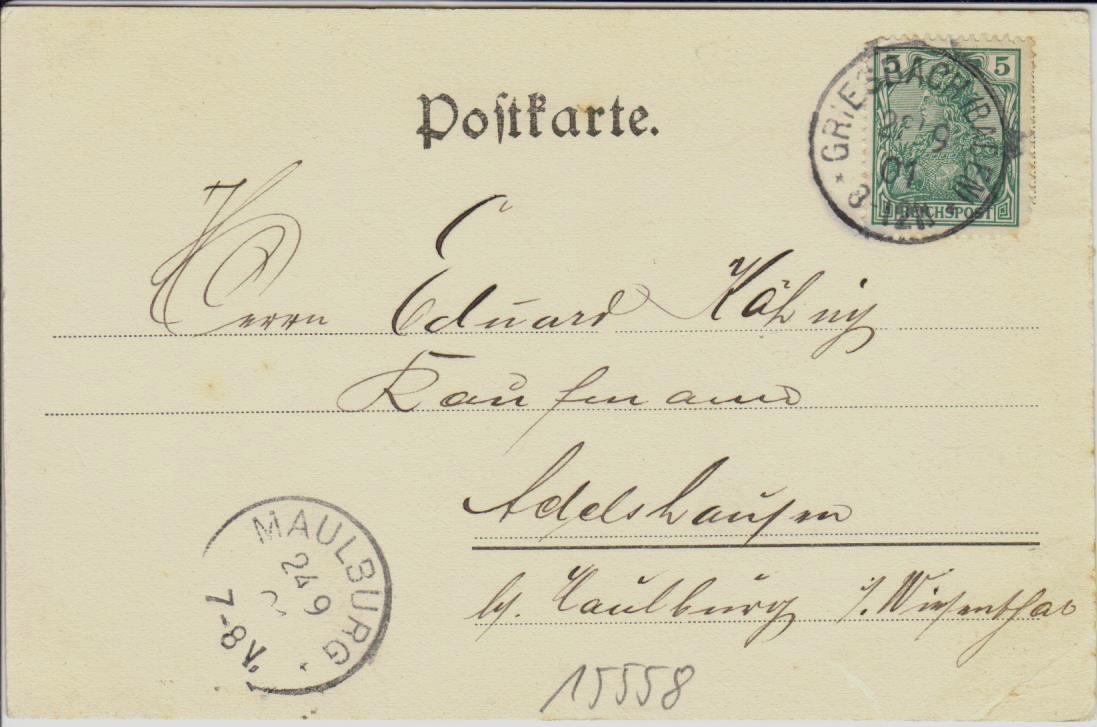 Postkarte.
5 5
REICHSPOST
* GRIESBACH (BADEN) *
9
01
8-12N
Herrn Eduard
Kaufmann
Adelshausen
b/. Maulburg i/. Wiesenthal
MAULBURG
24 9
7-8V.
15558